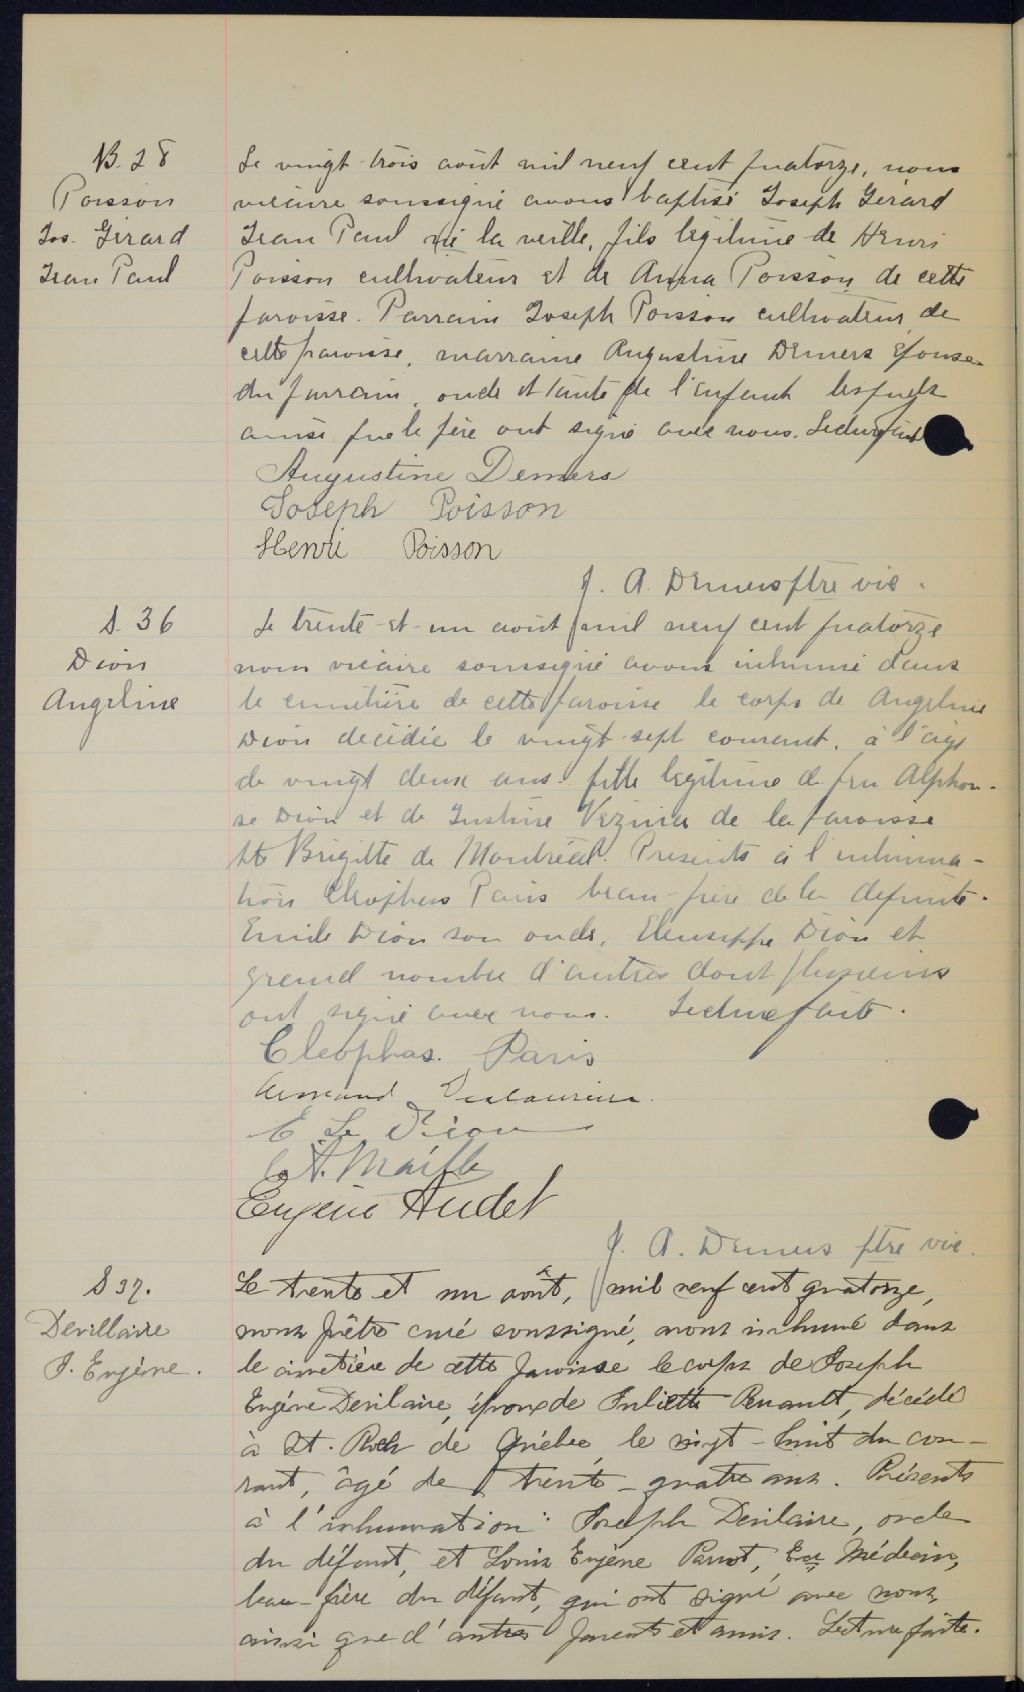 B. 28
Poisson
Jos. Gérard
Jean Paul
Le vingt-trois août mil neuf cent quatorze, nous
vicaire soussigné avons baptisé Joseph Gérard
Jean Paul né la veille, fils légitime de Henri
Poisson cultivateur et de Anna Poisson de cette
paroisse. Parrain Joseph Poisson cultivateur de
cette paroisse, marraine Augustine Demers épouse
du parrain, oncle et tante de l'enfant lesquels
ainsi que le père ont signé avec nous. Lecture faite
Augustine Demers
Joseph Poisson
Henri Poisson
J. A. Demers ptre vic.
S. 36
Dion
Angeline
Le trente-et-un août mil neuf cent quatorze
nous vicaire soussigné avons inhumé dans
le cimetière de cette paroisse le corps de Angeline
Dion décédée le vingt-sept courant, à l'âge
de vingt deux ans fille légitime de feu Alphon-
se Dion et de Justine Vézina de la paroisse
Ste Brigitte de Montréal. Présents à l'inhuma-
tion Cléophas Paris beau-frère de la défunte.
Emile Dion son oncle, Eleusippe Dion et
grand nombre d'autres dont plusieurs
ont signé avec nous. Lecture faite.
Cléophas. Paris
Armand Deslauriers
E Le Dion
A. Maille
Eugène Audet
J. A. Demers ptre vic.
S 37.
Devillaire
J. Eugène.
Le trente et un août, mil neuf cent quatorze,
nous prêtre curé soussigné, avons inhumé dans
le cimetière de cette paroisse le corps de Joseph
Eugène Devilaire, époux de Juliette Renault, décédé
à St. Roch de Québec, le vingt-huit du cou-
rant, âgé de trente-quatre ans. Présents
à l'inhumation: Joseph Devilaire, oncle
du défunt, et Louis Eugène Parrot, Ecr Médecin,
beau-frère du défunt, qui ont signé avec nous,
ainsi que d'autres parents et amis. Lecture faite.